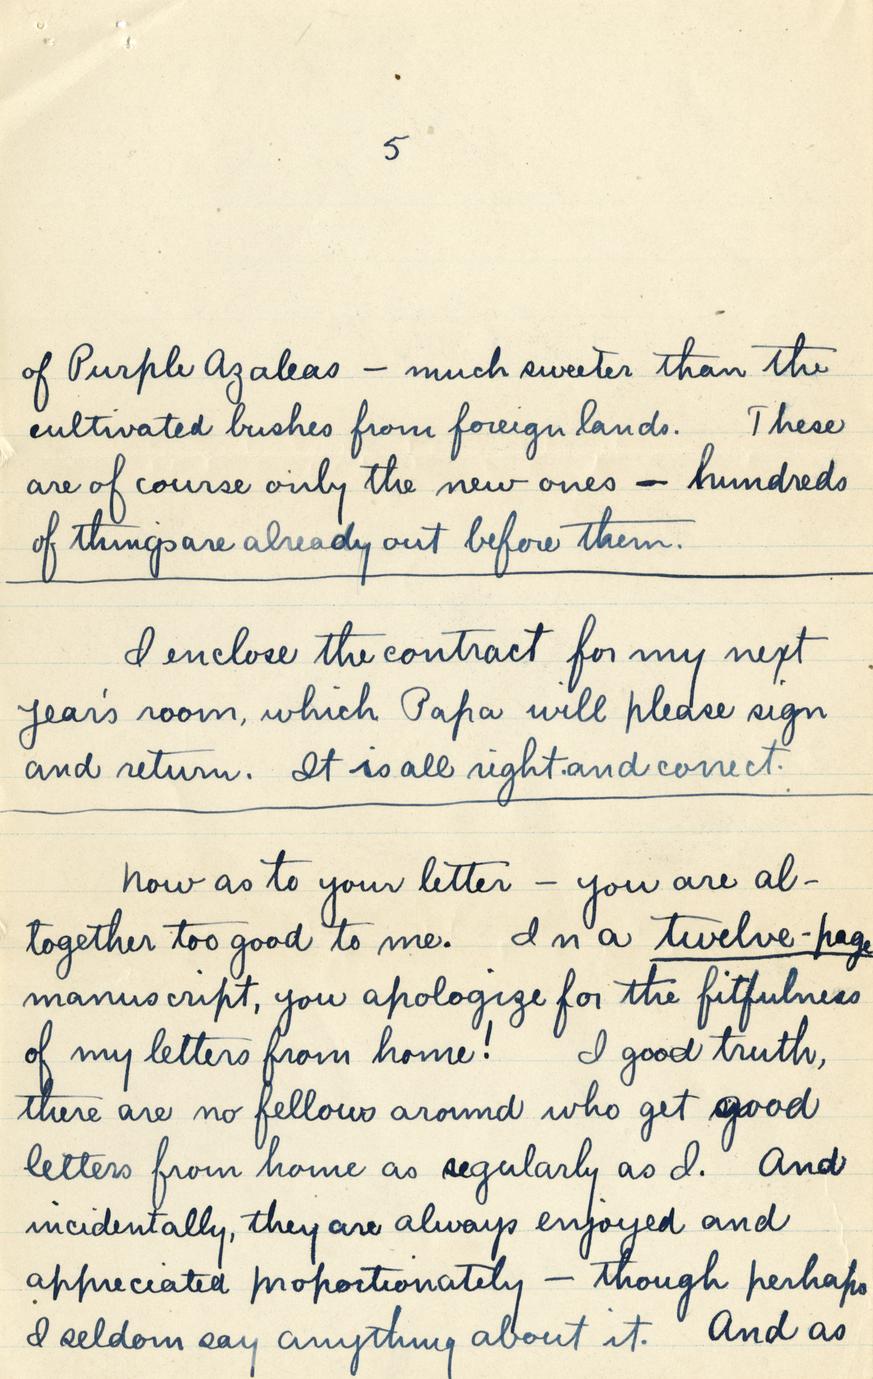 5
of Purple Azaleas – much sweeter than the
cultivated bushes from foreign lands. These
are of course only the new ones – hundreds
of things are already out before them.
I enclose the contract for my next
year's room, which Papa will please sign
and return. It is all right and correct.
Now as to your letter – you are al-
together too good to me. In a twelve-page
manuscript, you apologize for the fitfulness
of my letters from home! I good truth,
there are no fellows around who get good
letters from home as regularly as I. And
incidentally, they are always enjoyed and
appreciated proportionately – though perhaps
I seldom say anything about it. And as